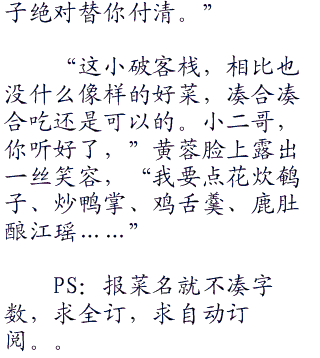 子绝对替你付清。”
“这小破客栈，相比也
没什么像样的好菜，凑合凑
合吃还是可以的。小二哥，
你听好了，”黄蓉脸上露出
一丝笑容，“我要点花炊鹌
子、炒鸭掌、鸡舌羹、鹿肚
酿江瑶……”
PS：报菜名就不凑字
数，求全订，求自动订
阅。。